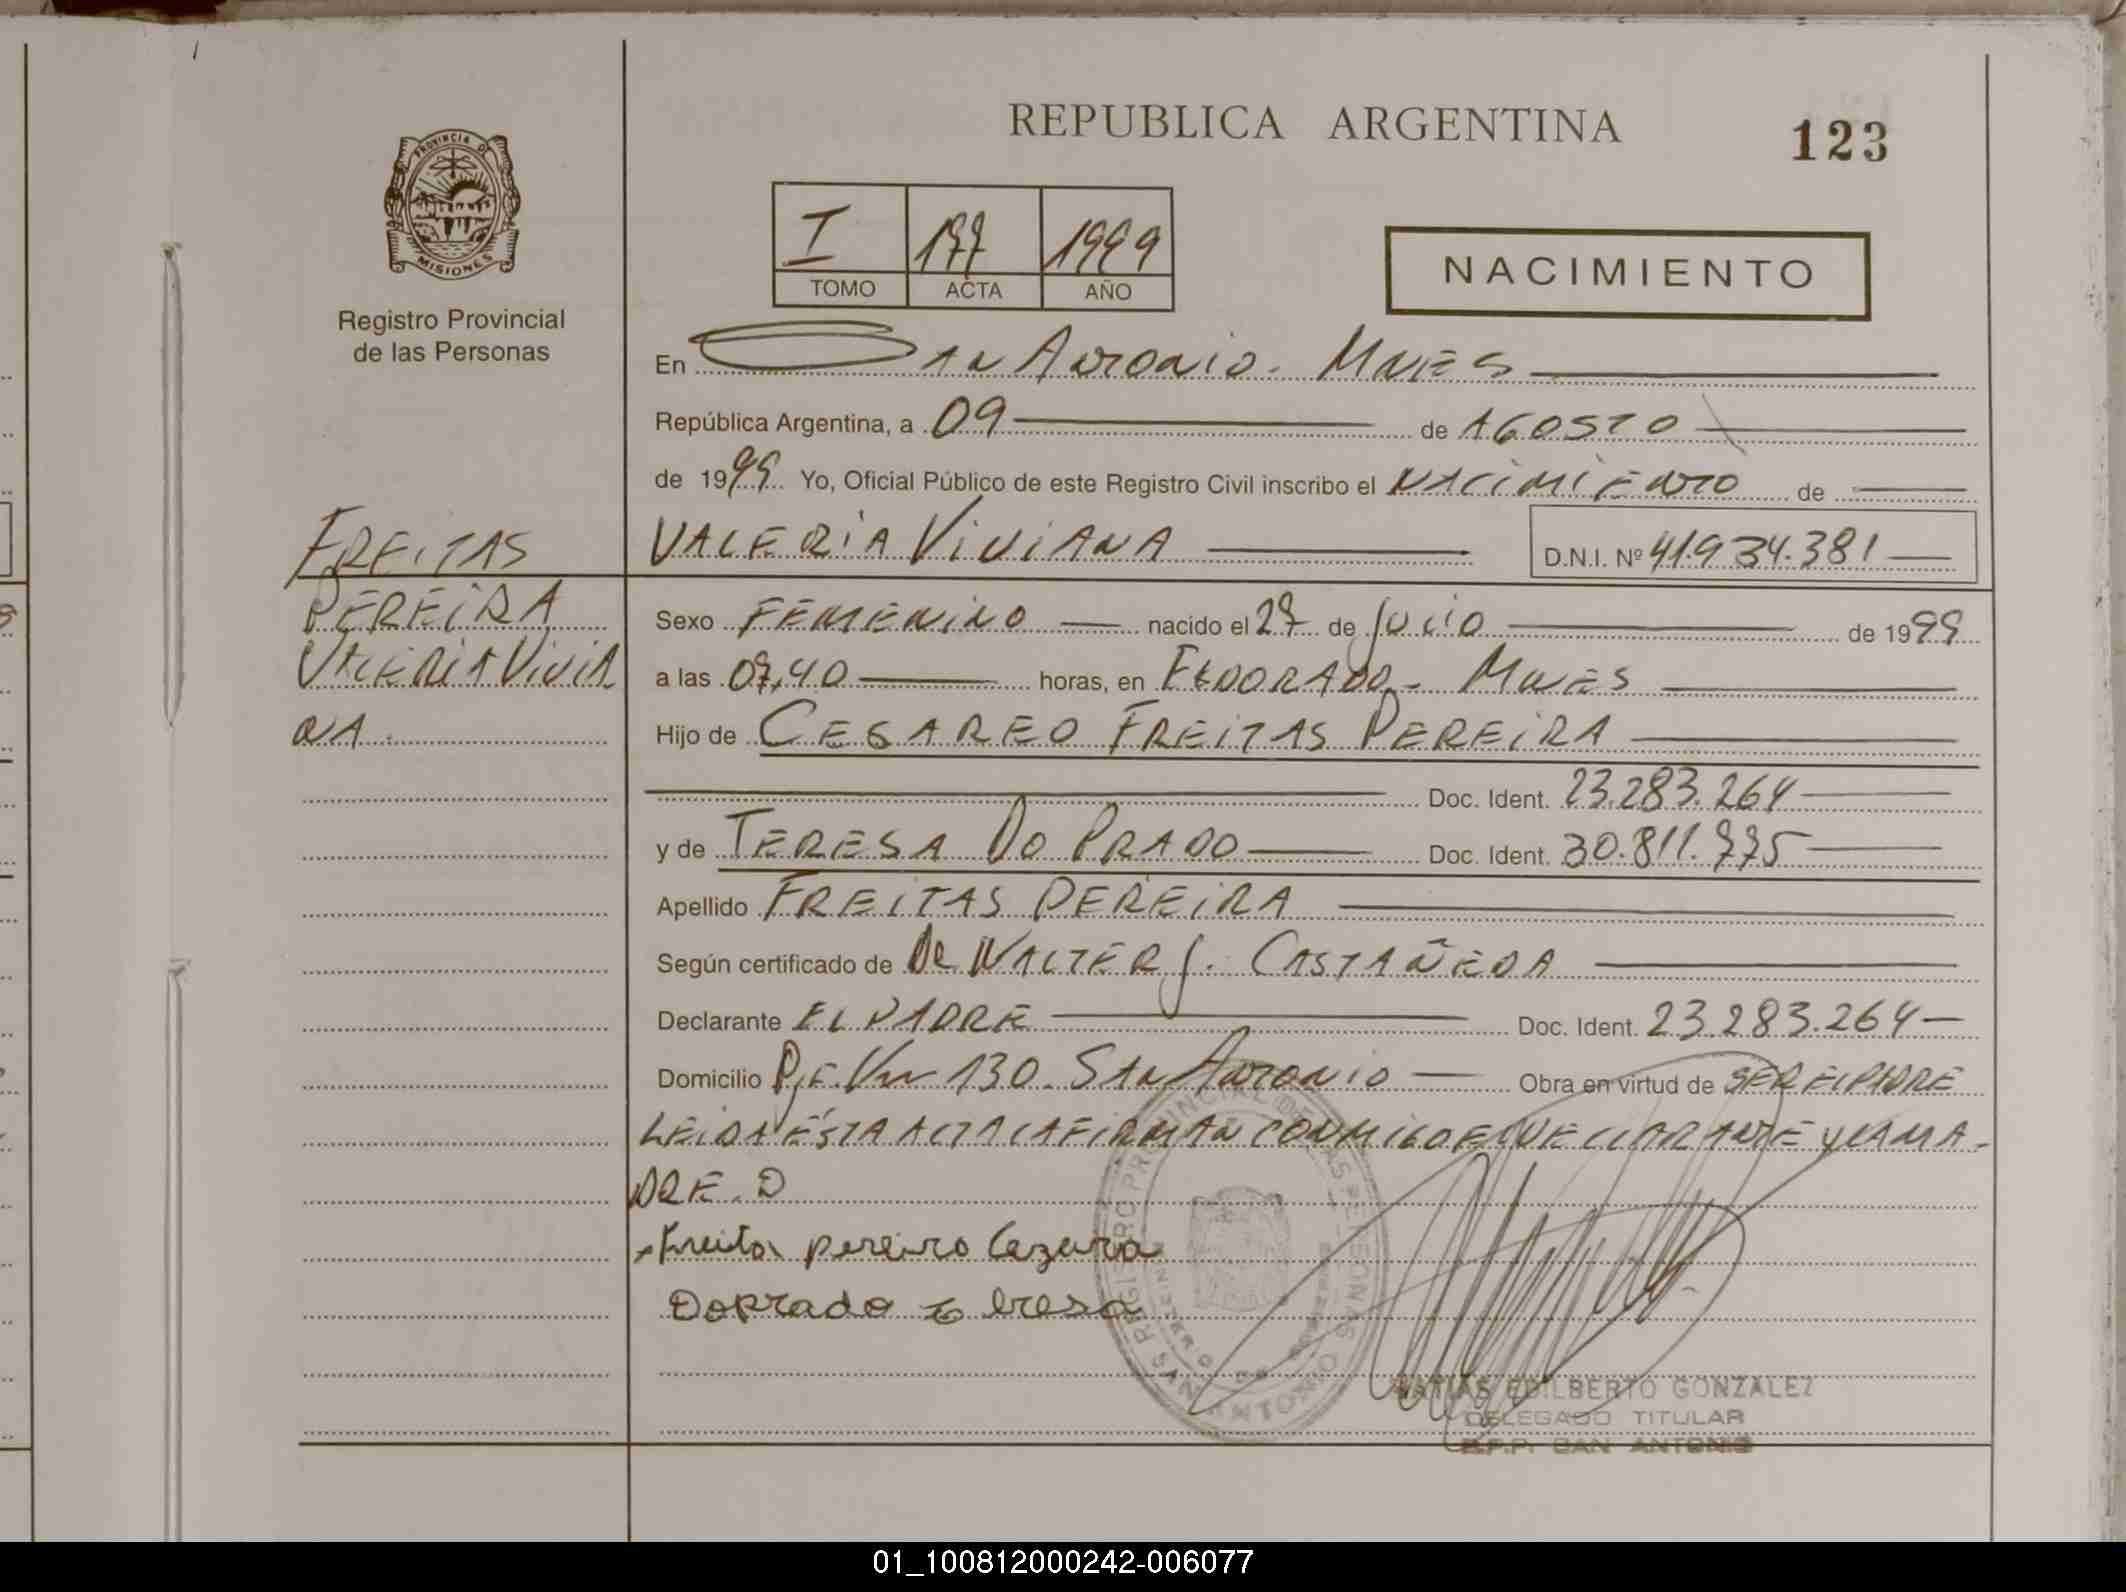 REPUBLICA ARGENTINA
123
PROVINCIA D
MISIONES
Registro Provincial
de las Personas
I 177 1999
TOMO ACTA AÑO
NACIMIENTO
En San Antonio - Mnes
República Argentina, a 09 de AGOSTO
de 1999 Yo, Oficial Público de este Registro Civil inscribo el NACIMIENTO de
VALERIA VIVIANA D.N.I. Nº 41.934.381
FREITAS
PEREIRA
VALERIA VIVIA
NA
Sexo FEMENINO nacido el 27 de JULIO de 1999
a las 07,40 horas, en ELDORADO - MNES
Hijo de CESAREO FREITAS PEREIRA
Doc. Ident. 23.283.264
y de TERESA DO PRADO Doc. Ident. 30.811.775
Apellido FREITAS PEREIRA
Según certificado de DR WALTER J. CASTAÑEDA
Declarante EL PADRE Doc. Ident. 23.283.264
Domicilio Pje. 130. San Antonio Obra en virtud de SER EL PADRE
LEIDA ESTA ACTA LA FIRMAN CONMIGO EL DECLARANTE Y LA MA-
DRE.
Freita pereiro
Doprado teresa
REGISTRO PROVINCIAL DE LAS PERSONAS
SAN ANTONIO
MATIAS EDILBERTO GONZALEZ
DELEGADO TITULAR
R.P.P. SAN ANTONIO
01_100812000242-006077